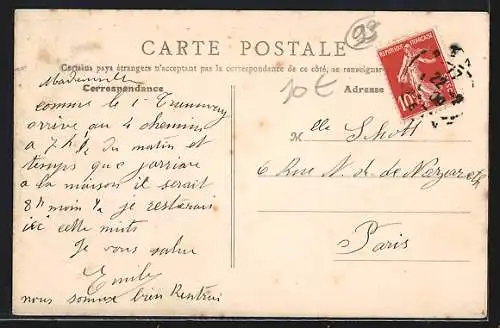 CARTE POSTALE
Certains pays étrangers n'acceptant pas la correspondance de ce côté, se renseigner
Correspondance
Adresse
93
10 €
REPUBLIQUE FRANÇAISE
10
comme le 1er Tramway
arrive au 4 chemins
a 7h ½ du matin et
temps que j'arrive
a la maison il serait
8h moin ¼ je resterai
ici cette nuits
Je vous salue
Emile
nous somme bien Rentrei
Mlle Schott
6 Rue N. d. de Nazareth
Paris